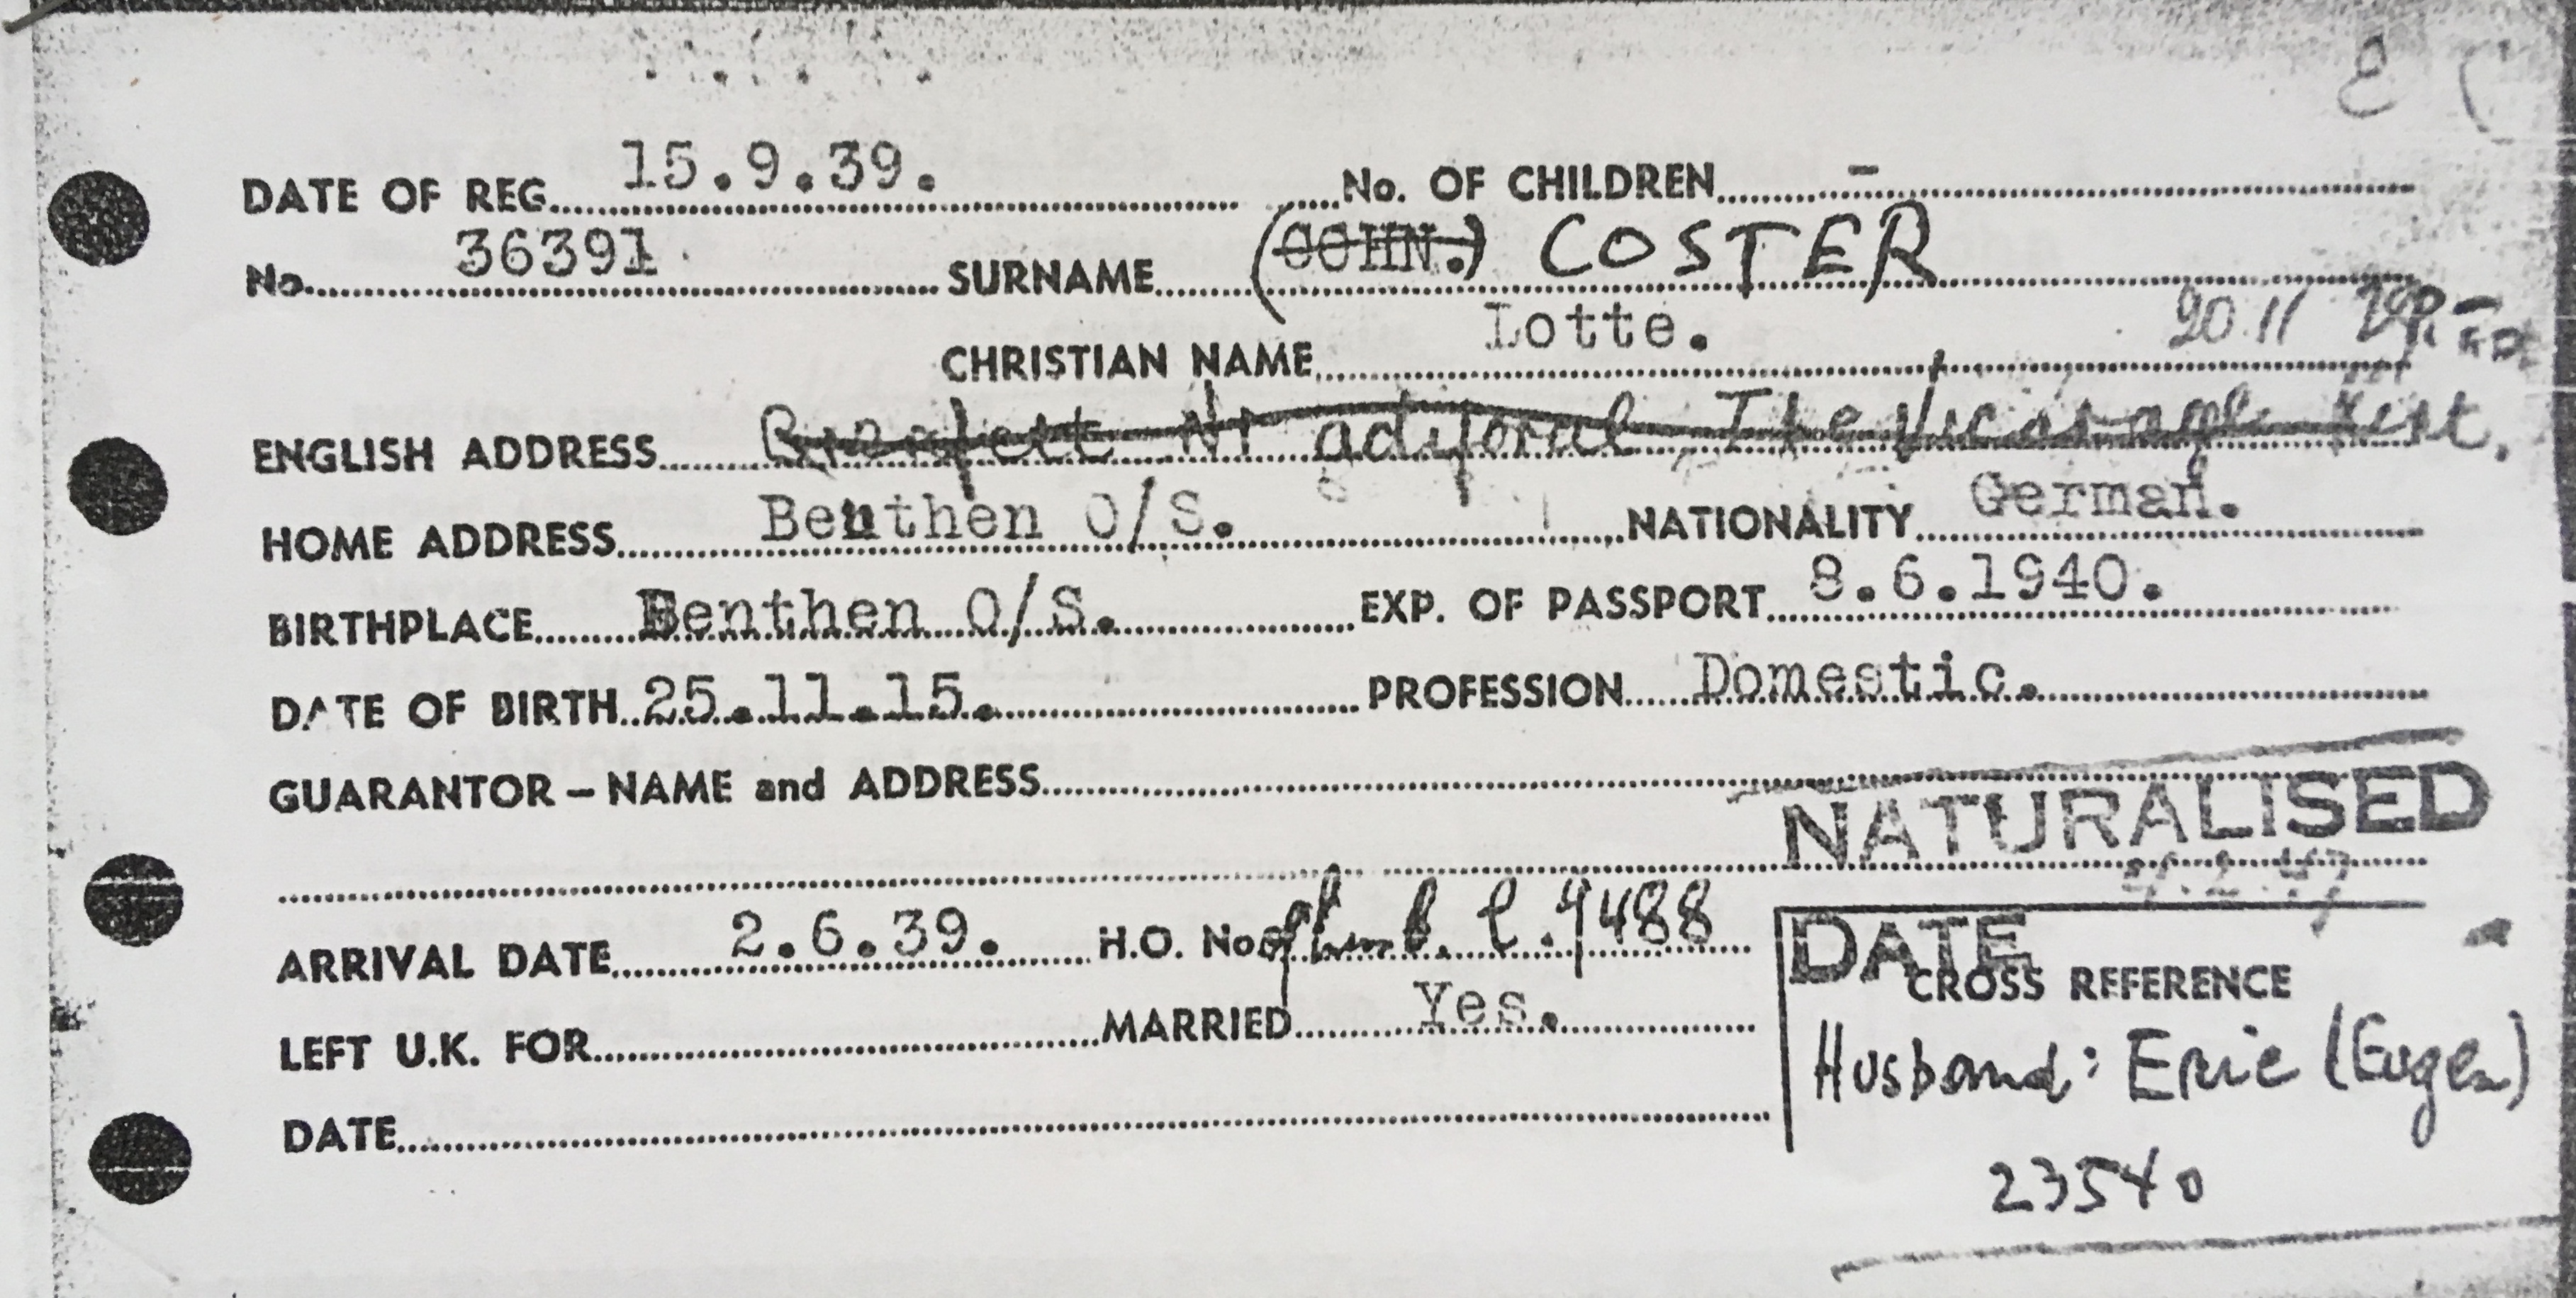 DATE OF REG. 15.9.39. No. OF CHILDREN -
No. 36391 SURNAME (COHN.) COSTER
CHRISTIAN NAME Lotte.
20.11
ENGLISH ADDRESS The Vicarage Kent.
HOME ADDRESS Beuthen O/S. NATIONALITY German.
BIRTHPLACE Benthen O/S. EXP. OF PASSPORT 8.6.1940.
DATE OF BIRTH 25.11.15. PROFESSION Domestic.
GUARANTOR – NAME and ADDRESS
NATURALISED
ARRIVAL DATE 2.6.39. H.O. No. 9488
DATE
CROSS REFERENCE
LEFT U.K. FOR MARRIED Yes.
Husband: Eric (Eugen)
DATE
23540